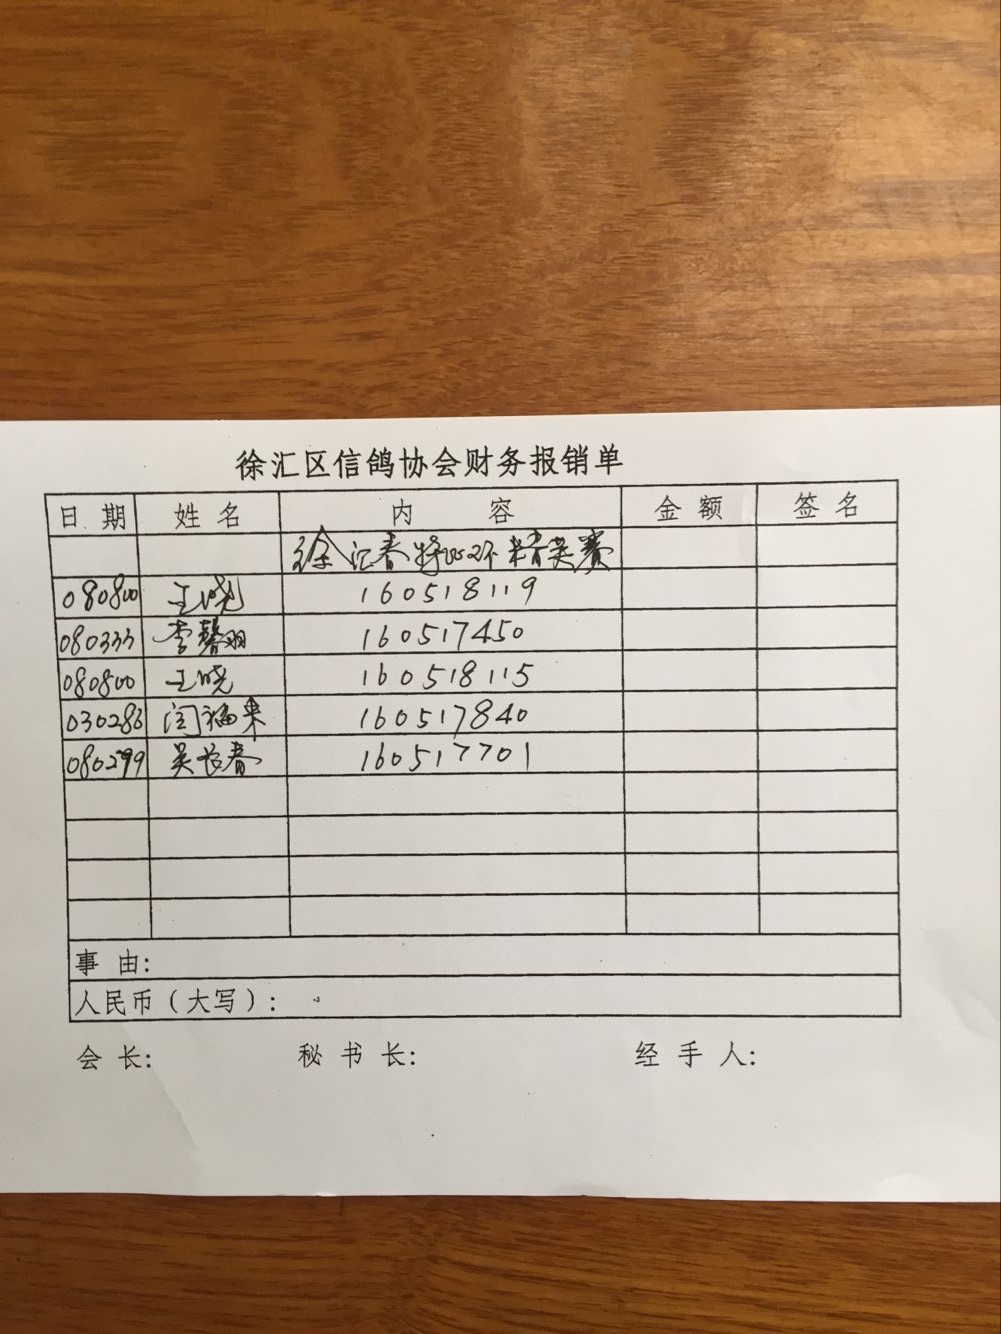 徐汇区信鸽协会财务报销单
日期 姓名 内容 金额 签名
徐汇春特比环精英赛
080800 王晓 160518119
080333 李馨羽 160517450
080800 王晓 160518115
030286 闫福来 160517840
080299 吴长春 160517701
事由:
人民币(大写):
会长: 秘书长: 经手人: